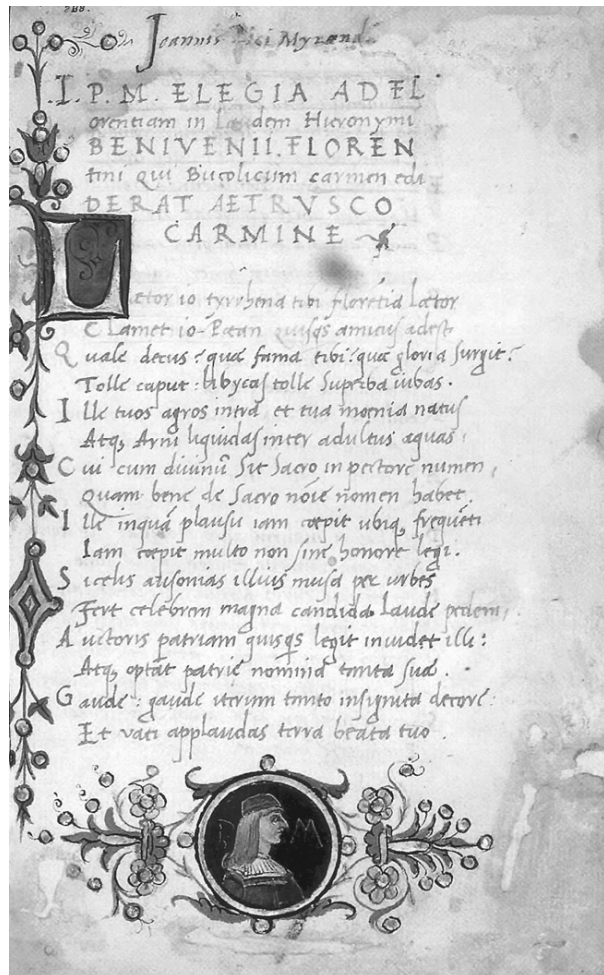 288.
Joannis Pici Myrand
.I. P. M. ELEGIA AD FL
orentiam in laudem Hieronymi
BENIVENII. FLOREN
tini qui Bucolicum carmen edi
DERAT AETRVSCO
CARMINE
Lætor io tyrrhena tibi florẽtia lætor
Clamet io-Pæan quisqs amicus adest
Quale decus? quæ fama tibi? quæ gloria surgit?
Tolle caput: libycas tolle superba iubas.
Ille tuos agros intra et tua mœnia natus
Atq, Arni liquidas inter adultus aquas,
Cui cum diuinũ sit sacro in pectore numen,
Quam bene de sacro nõie nomen habet.
Ille inquã plausu iam cœpit ubiq, frequẽti
Iam cœpit multo non sine honore legi.
Sicelis ausonias illius musa per urbes
Fert celebrem magna candida laude pedem,
Auctoris patriam quisqs legit inuidet illi:
Atq, optat patriæ nomina tanta suæ.
Gaude: gaude iterum tanto insignita decore:
Et vati applaudas terra beata tuo.
P M